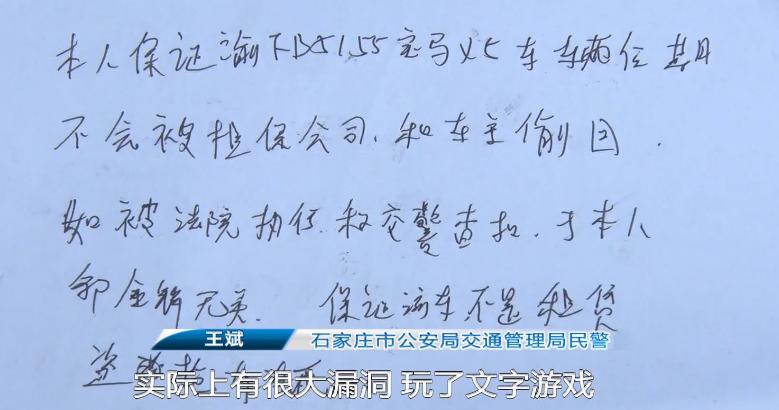 本人保证渝 宝马X5车车辆 期
不会被担保公司、和车主偷回.
如被法院执行 交警查扣、于本人
郭金 无关. 保证该车不是租赁
盗
王斌 石家庄市公安局交通管理局民警
实际上有很大漏洞 玩了文字游戏